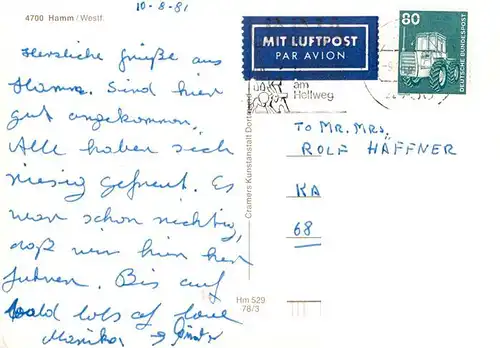 10-8-81
4700 Hamm/Westf.
Herzliche grüße aus
Hamm. Sind hier
gut angekommen.
Alle haben sich
riesig gefreut. Es
war schon richtig,
daß wir hier her
fuhren. Bis auf
bald lots of love
Monika
MIT LUFTPOST
PAR AVION
80
DEUTSCHE BUNDESPOST
am
Hellweg
Cramers Kunstanstalt Dortmund
TO MR. MRS.
ROLF HÄFFNER
KA
68
Hm 529
78/3